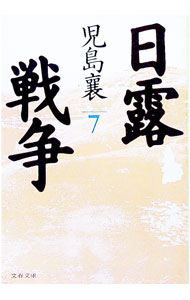 日露
戦争
児島襄
7
文春文庫